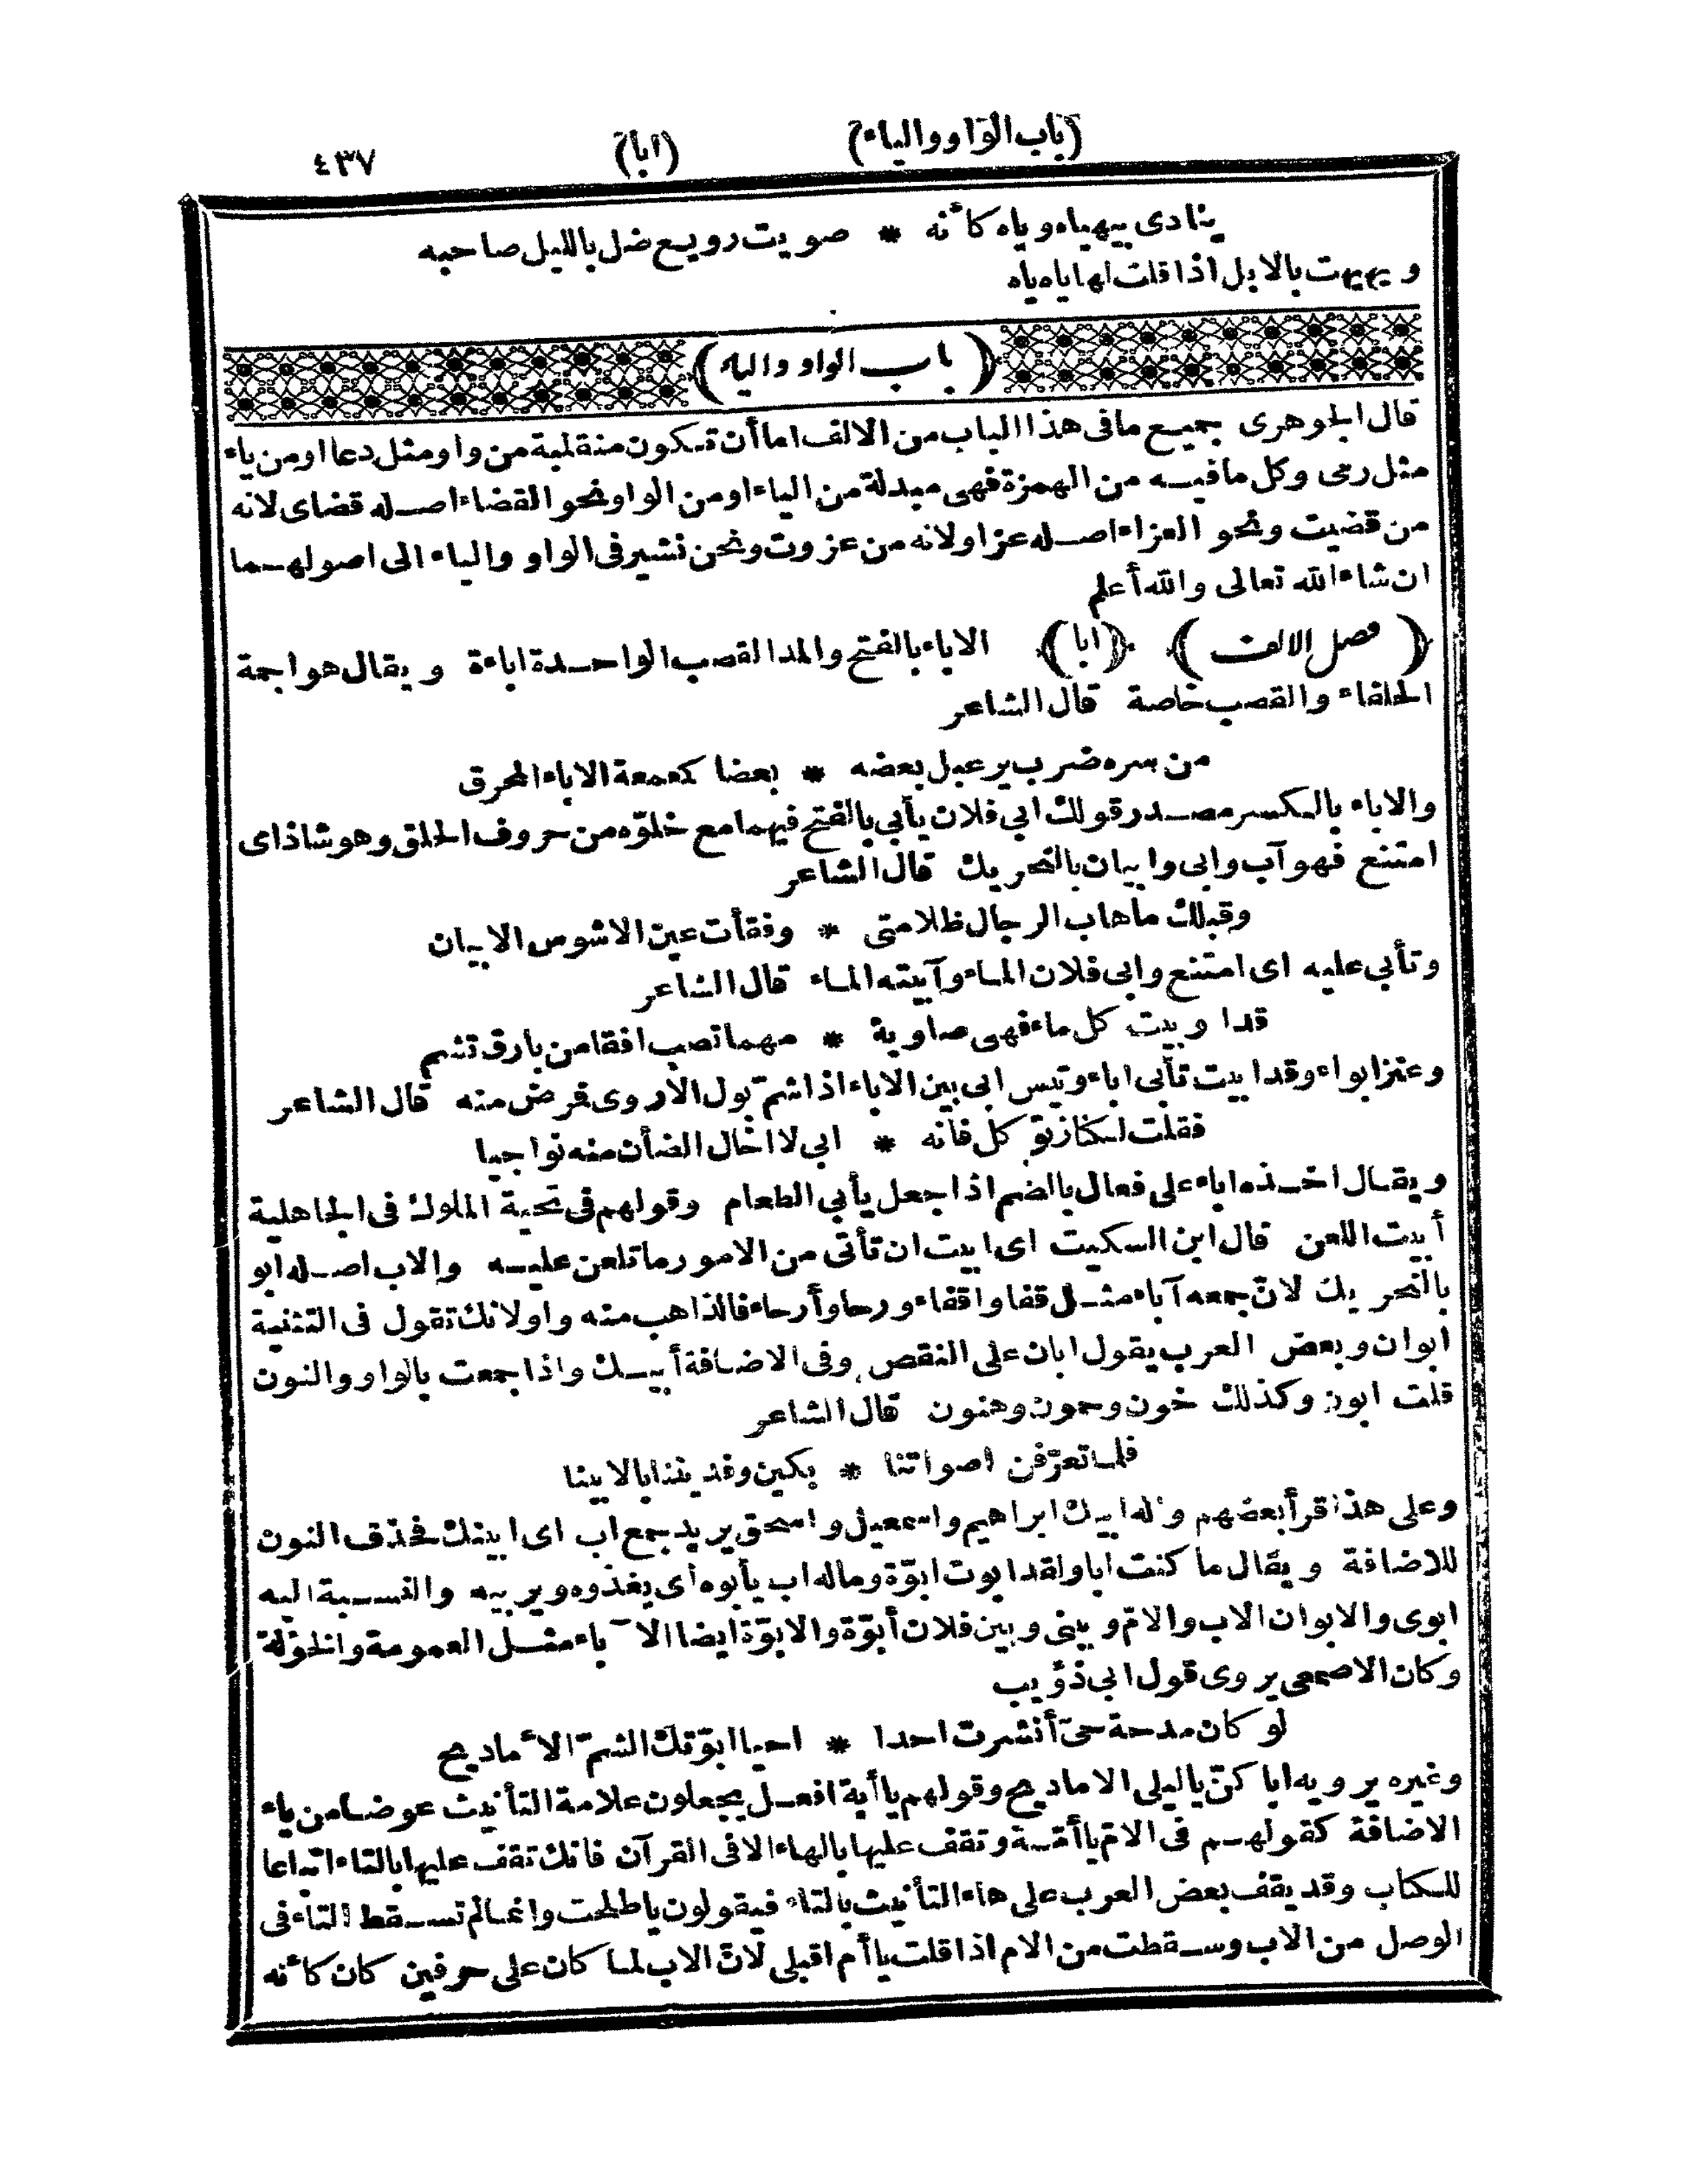 (باب الواو والياء) (ابا) ٤٣٧
ينادى بيهياه وياه كأنه * صويت رويع ضل بالليل صاحبه
ويهيهت بالابل اذا قلت لها ياه ياه
(باب الواو والياء)
قال الجوهرى جميع ما فى هذا الباب من الالف اما أن تكون منقلبة من واو مثل دعا او من ياء
مثل رمى وكل ما فيه من الهمزة فهى مبدلة من الياء او من الواو نحو القضاء اصله قضاى لانه
من قضيت ونحو العزاء اصله عزاو لانه من عزوت ونحن نشير فى الواو والياء الى اصولهما
ان شاء الله تعالى والله أعلم
(فصل الالف) (ابا) الاباء بالفتح والمد القصب الواحدة اباءة ويقال هو اجمة
الحلفاء والقصب خاصة قال الشاعر
من سره ضرب يرعبل بعضه * بعضا كمعمعة الاباء المحرق
والاباء بالكسر مصدر قولك ابى فلان يأبى بالفتح فيهما مع خلوّه من حروف الحلق وهو شاذ اى
امتنع فهو آب وابى وابيان بالتحريك قال الشاعر
وقبلك ما هاب الرجال ظلامتى * وفقأت عين الاشوس الابيان
وتأبى عليه اى امتنع وابى فلان الماء وآبيته الماء قال الشاعر
قد اوبيت كل ماء فهى صاوية * مهما تصب افقا من بارق تشم
وعنز ابواء وقد ابيت تأبى اباء وتيس ابى بين الاباء اذا شمّ بول الاروى فمرض منه قال الشاعر
فقلت لكناز كل فانه * ابى لا اخال الضأن منه نواجيا
ويقال اخذه اباء على فعال بالضم اذا جعل يأبى الطعام وقولهم فى تحية الملوك فى الجاهلية
أبيت اللعن قال ابن السكيت اى ابيت ان تأتى من الامور ما تلعن عليه والاب اصله ابو
بالتحريك لانّ جمعه آباء مثل قفا واقفاء ورحا وأرحاء فالذاهب منه واو لانك تقول فى التثنية
ابوان وبعض العرب يقول ابان على النقص وفى الاضافة أبيك واذا جمعت بالواو والنون
قلت ابون وكذلك خون وحمون وهنون قال الشاعر
فلما تعرّفن اصواتنا * بكين وفديننا بالابينا
وعلى هذا قرأ بعضهم واله ابيك ابراهيم واسمعيل واسحق يريد جمع اب اى ابينك فحذف النون
للاضافة ويقال ما كنت ابا ولقد ابوت ابوّة وماله اب يأبوه أى يغذوه ويربيه والنسبة اليه
ابوى والابوان الاب والامّ وبينى وبين فلان أبوّة والابوّة ايضا الآباء مثل العمومة والخؤلة
وكان الاصمعى يروى قول ابى ذؤيب
لو كان مدحة حىّ أنشرت احدا * احيا ابوّتك الشمّ الأماديح
وغيره يرويه ابا كنّ يا ليلى الاماديح وقولهم يا أبة افعل يجعلون علامة التأنيث عوضا من ياء
الاضافة كقولهم فى الامّ يا أمّة وتقف عليها بالهاء الا فى القرآن فانك تقف عليها بالتاء اتباعا
للكتاب وقد يقف بعض العرب على هاء التأنيث بالتاء فيقولون يا طلحت وانما لم تسقط التاء فى
الوصل من الاب وسقطت من الام اذا قلت يا أم اقبلى لانّ الاب لما كان على حرفين كان كأنه